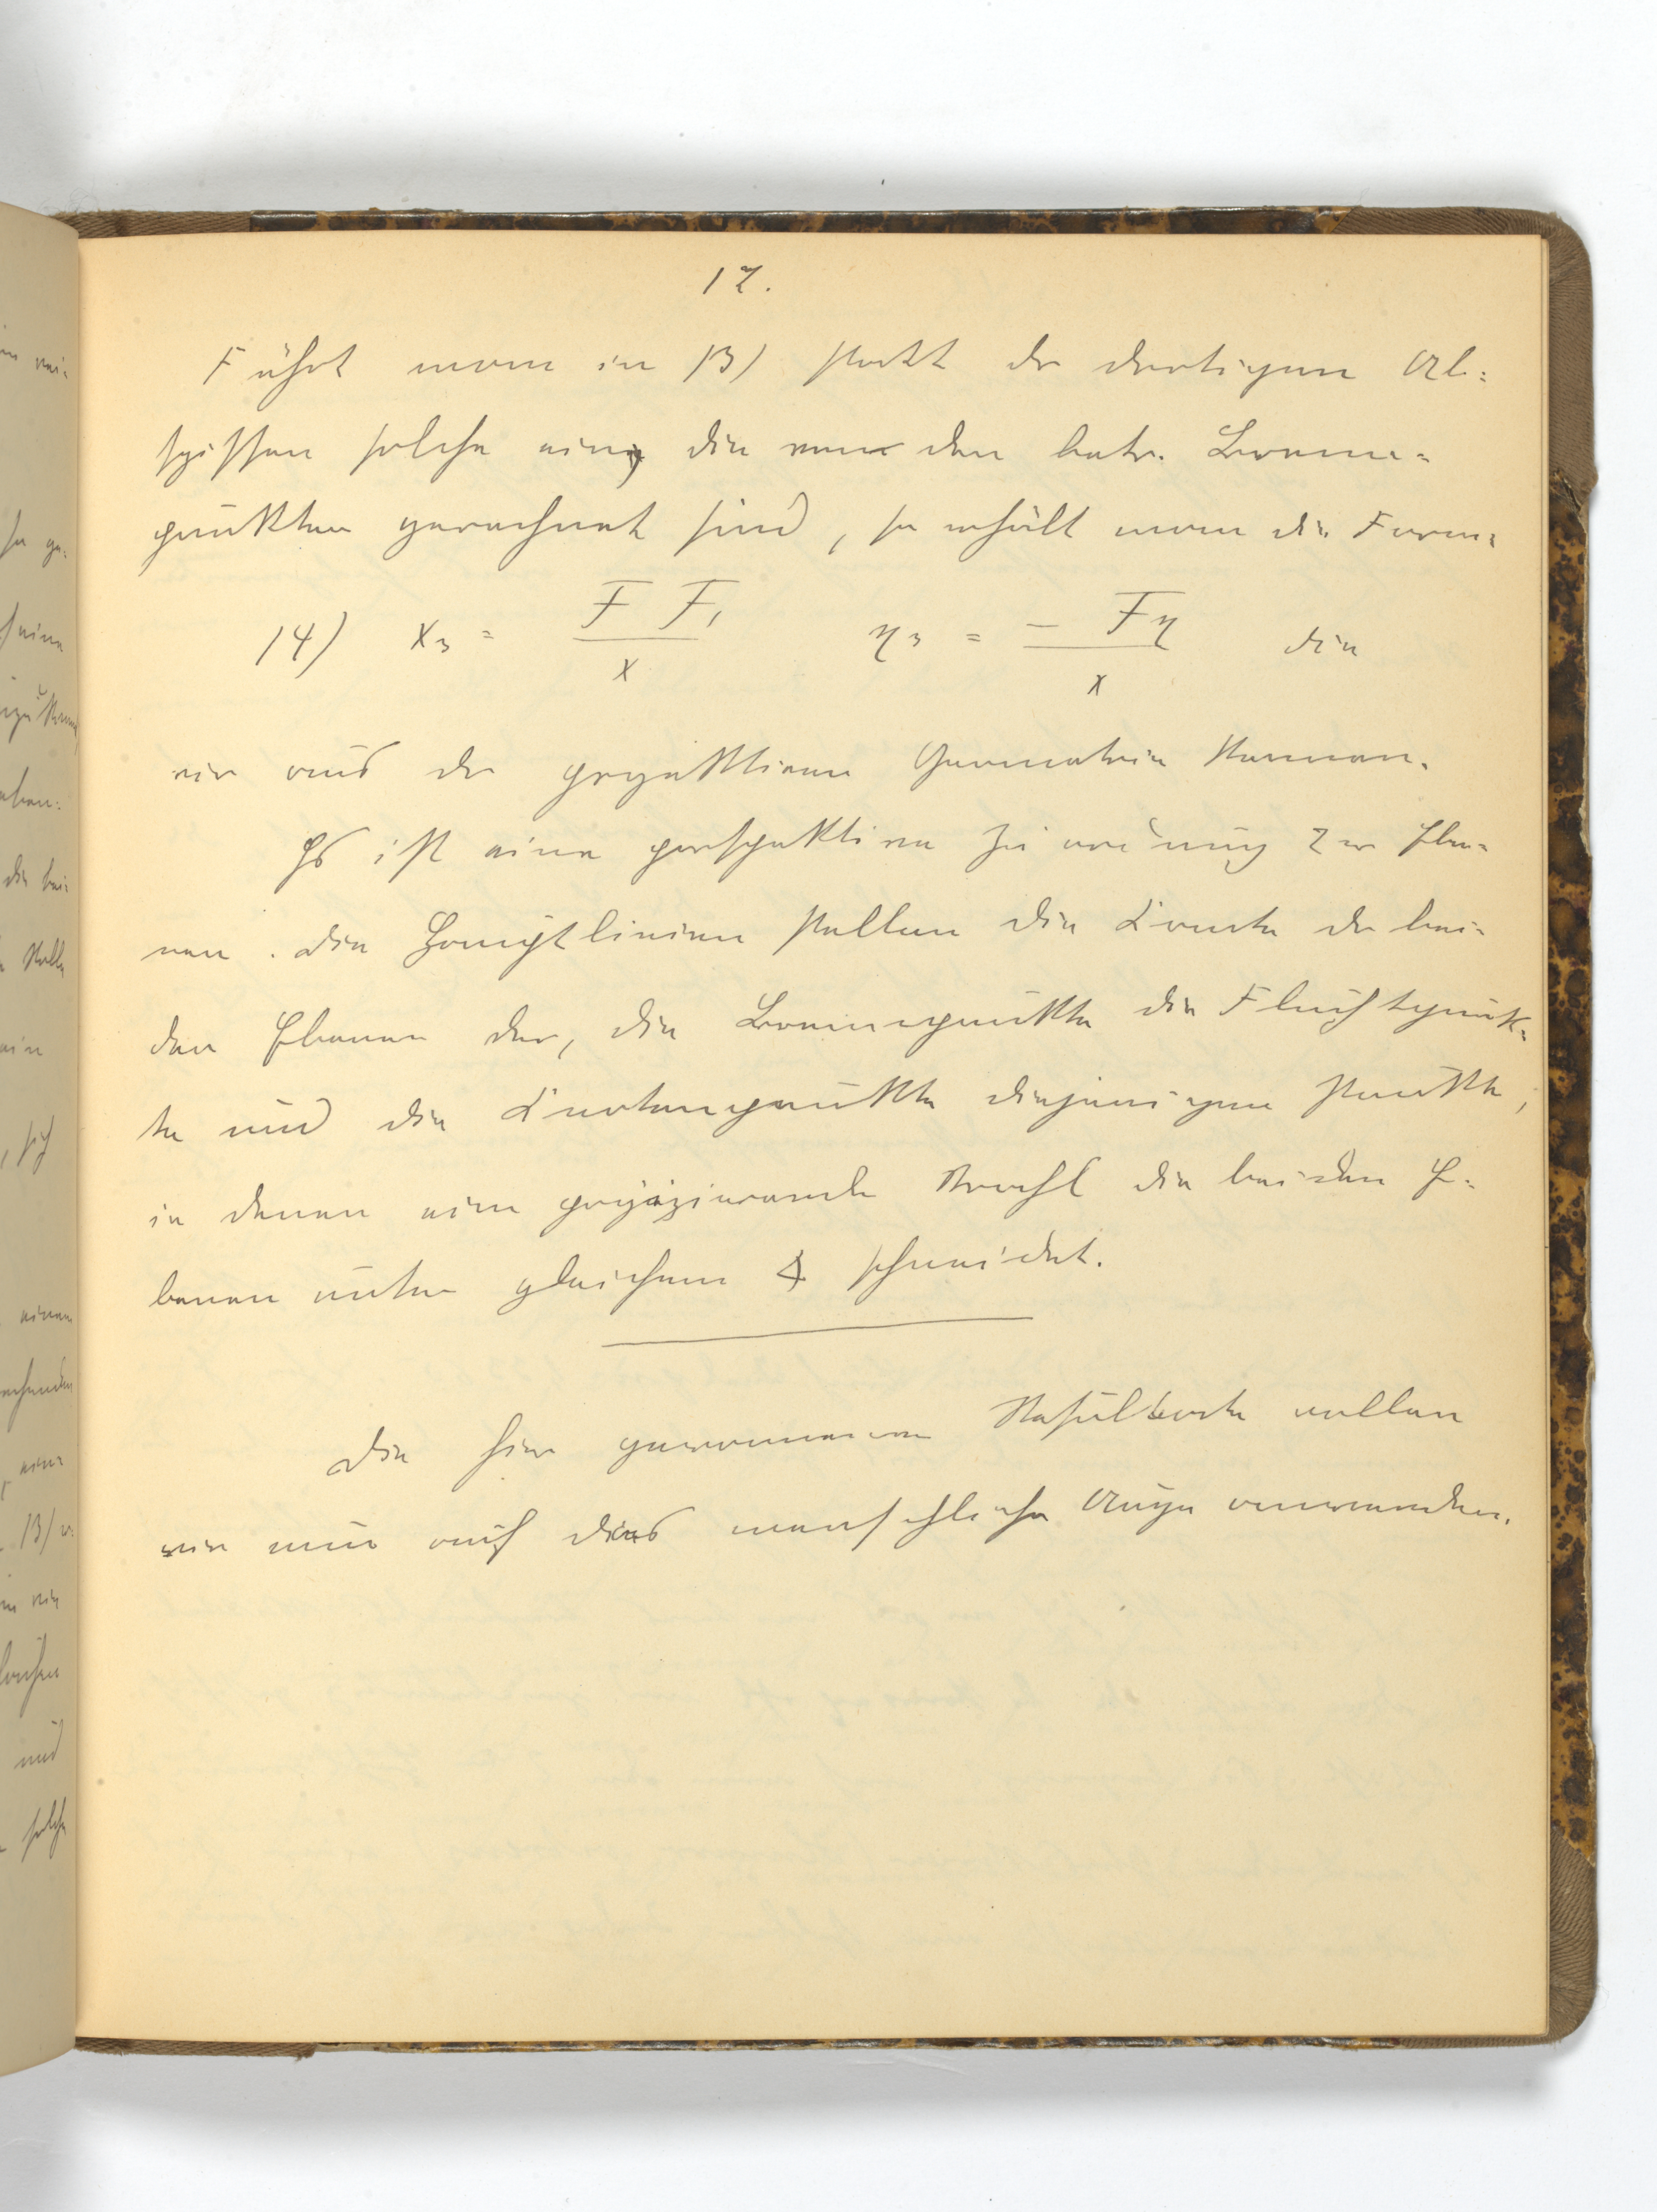 12.
Führt man in 13) statt der dortigen Ab-
szissen solche ein, die von den betr. Brenn-
punkten gerechnet sind, so erhält man die Form:
14) x₃ = F F₁ / x   η₃ = - Fη / x   die
wir aus der projektiven Geometrie kennen.
Es ist eine perspektive Zuordnung zw Ebe-
nen. Die Hauptlinien stellen die Kante der bei-
den Ebenen dar, die Brennpunkte die Fluchtpunk-
te und die Knotenpunkte diejenigen Punkte,
in denen ein projizierende Strahl die beiden E-
benen unter gleichem ∢ schneidet.
Die hier gewonnenen Resultate wollen
wir nun auf das menschliche Auge anwenden.
sich
und
solche